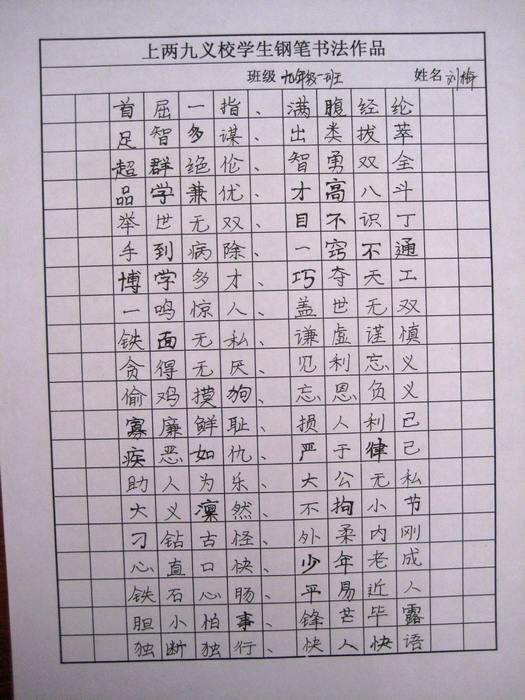 上两九义校学生钢笔书法作品
班级 九年级一班 姓名 刘梅
首屈一指、满腹经纶
足智多谋、出类拔萃
超群绝伦、智勇双全
品学兼优、才高八斗
举世无双、目不识丁
手到病除、一窍不通
博学多才、巧夺天工
一鸣惊人、盖世无双
铁面无私、谦虚谨慎
贪得无厌、见利忘义
偷鸡摸狗、忘恩负义
寡廉鲜耻、损人利己
疾恶如仇、严于律己
助人为乐、大公无私
大义凛然、不拘小节
刁钻古怪、外柔内刚
心直口快、少年老成
铁石心肠、平易近人
胆小怕事、锋芒毕露
独断独行、快人快语